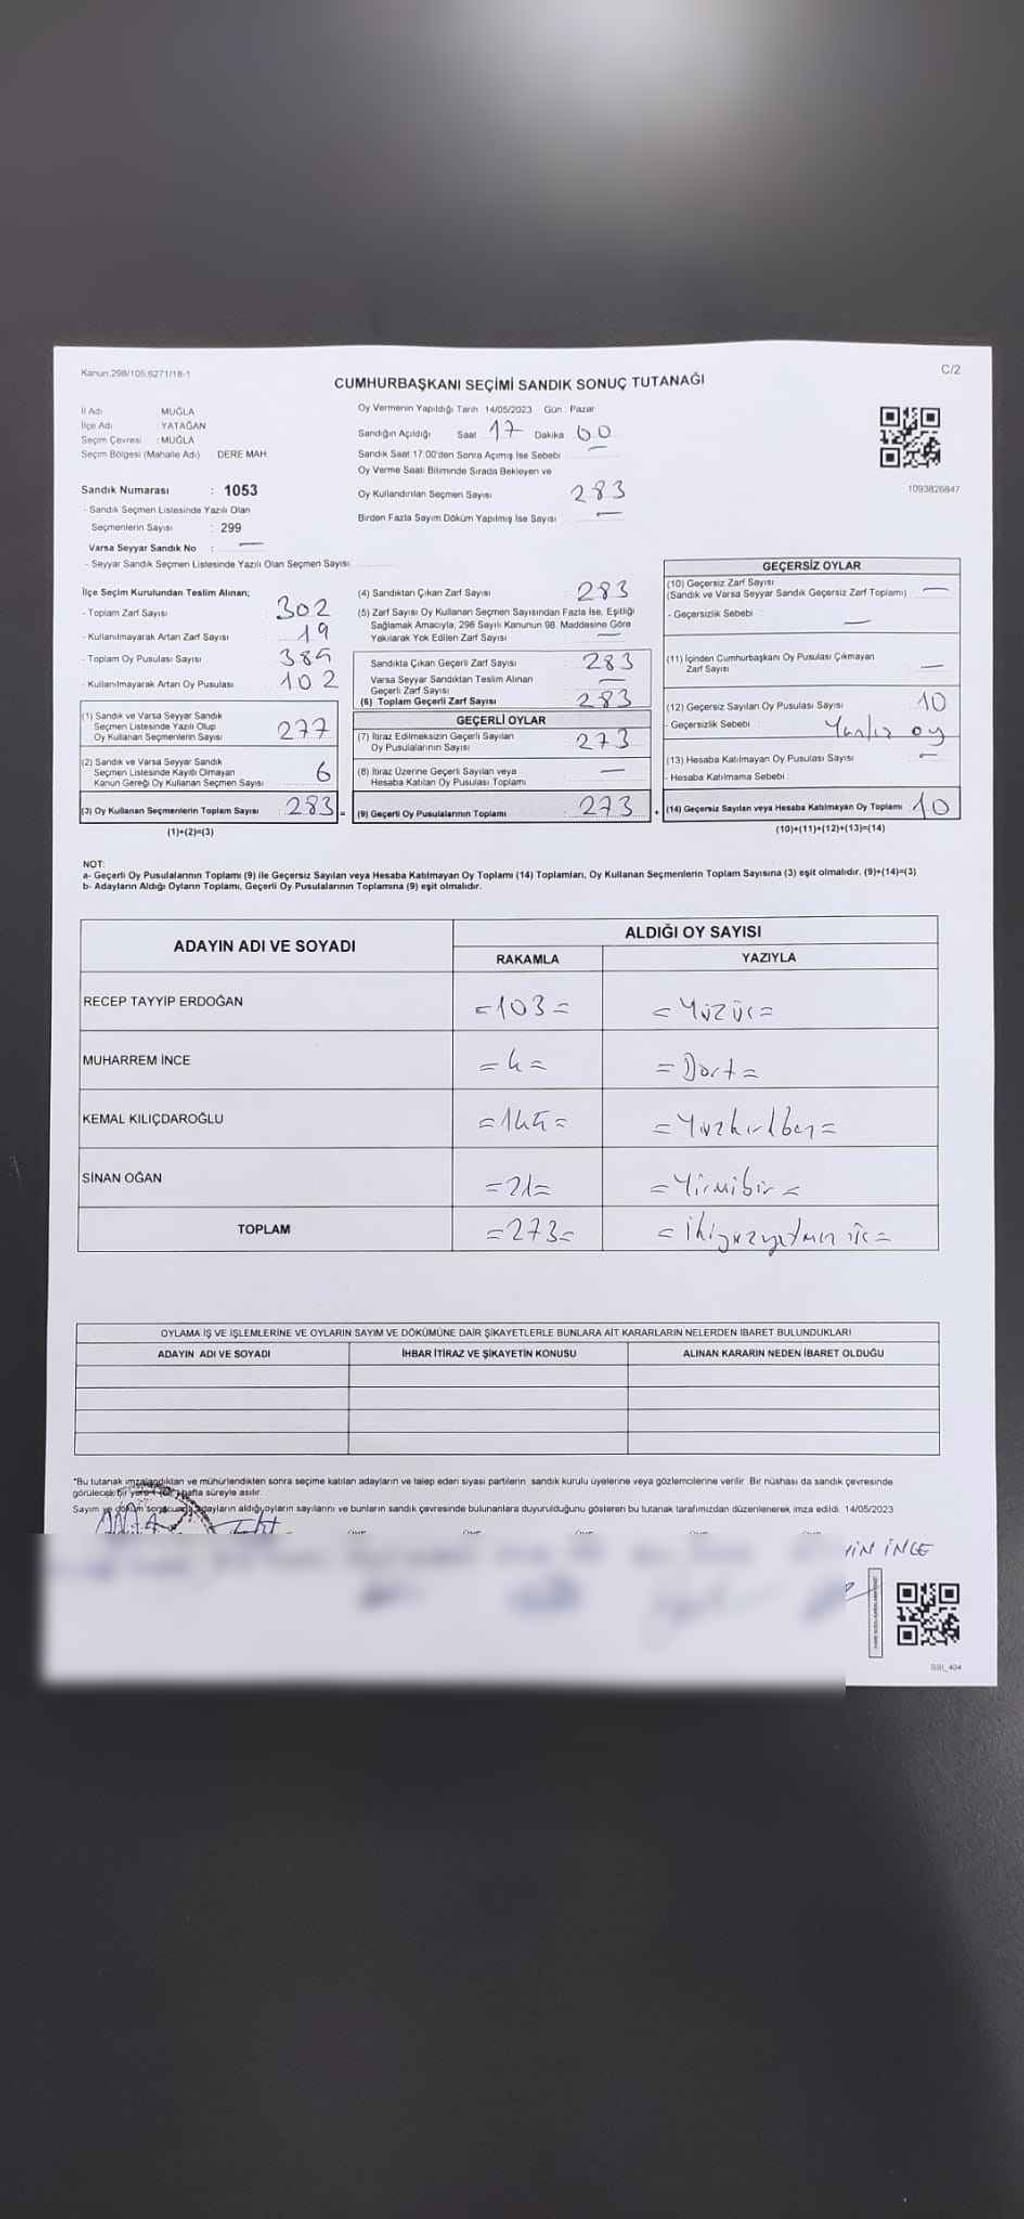 Kanun.298/105.6271/18-1
C/2
CUMHURBAŞKANI SEÇİMİ SANDIK SONUÇ TUTANAĞI
İl Adı : MUĞLA
İlçe Adı : YATAĞAN
Seçim Çevresi : MUĞLA
Seçim Bölgesi (Mahalle Adı) DERE MAH.
Sandık Numarası : 1053
- Sandık Seçmen Listesinde Yazılı Olan
Seçmenlerin Sayısı : 299
Varsa Seyyar Sandık No : —
- Seyyar Sandık Seçmen Listesinde Yazılı Olan Seçmen Sayısı
Oy Vermenin Yapıldığı Tarih 14/05/2023 Gün : Pazar
Sandığın Açıldığı Saat 17 Dakika 00
Sandık Saat 17.00'den Sonra Açılmış İse Sebebi —
Oy Verme Saati Bitiminde Sırada Bekleyen ve
Oy Kullandırılan Seçmen Sayısı 283
Birden Fazla Sayım Döküm Yapılmış İse Sayısı —
1093826847
İlçe Seçim Kurulundan Teslim Alınan;
- Toplam Zarf Sayısı 302
- Kullanılmayarak Artan Zarf Sayısı 19
- Toplam Oy Pusulası Sayısı 385
- Kullanılmayarak Artan Oy Pusulası 102
(1) Sandık ve Varsa Seyyar Sandık
Seçmen Listesinde Yazılı Olup
Oy Kullanan Seçmenlerin Sayısı 277
(2) Sandık ve Varsa Seyyar Sandık
Seçmen Listesinde Kayıtlı Olmayan
Kanun Gereği Oy Kullanan Seçmen Sayısı 6
(3) Oy Kullanan Seçmenlerin Toplam Sayısı 283 =
(1)+(2)=(3)
(4) Sandıktan Çıkan Zarf Sayısı 283
(5) Zarf Sayısı Oy Kullanan Seçmen Sayısından Fazla İse, Eşitliği
Sağlamak Amacıyla, 298 Sayılı Kanunun 98. Maddesine Göre
Yakılarak Yok Edilen Zarf Sayısı —
Sandıkta Çıkan Geçerli Zarf Sayısı 283
Varsa Seyyar Sandıktan Teslim Alınan
Geçerli Zarf Sayısı —
(6) Toplam Geçerli Zarf Sayısı 283
GEÇERLİ OYLAR
(7) İtiraz Edilmeksizin Geçerli Sayılan
Oy Pusulalarının Sayısı 273
(8) İtiraz Üzerine Geçerli Sayılan veya
Hesaba Katılan Oy Pusulası Toplamı —
(9) Geçerli Oy Pusulalarının Toplamı 273 +
GEÇERSİZ OYLAR
(10) Geçersiz Zarf Sayısı
(Sandık ve Varsa Seyyar Sandık Geçersiz Zarf Toplamı) —
- Geçersizlik Sebebi : —
(11) İçinden Cumhurbaşkanı Oy Pusulası Çıkmayan
Zarf Sayısı —
(12) Geçersiz Sayılan Oy Pusulası Sayısı 10
- Geçersizlik Sebebi : Yanlış oy
(13) Hesaba Katılmayan Oy Pusulası Sayısı —
- Hesaba Katılmama Sebebi :
(14) Geçersiz Sayılan veya Hesaba Katılmayan Oy Toplamı 10
(10)+(11)+(12)+(13)=(14)
NOT:
a- Geçerli Oy Pusulalarının Toplamı (9) ile Geçersiz Sayılan veya Hesaba Katılmayan Oy Toplamı (14) Toplamları, Oy Kullanan Seçmenlerin Toplam Sayısına (3) eşit olmalıdır. (9)+(14)=(3)
b- Adayların Aldığı Oyların Toplamı, Geçerli Oy Pusulalarının Toplamına (9) eşit olmalıdır.
ADAYIN ADI VE SOYADI
ALDIĞI OY SAYISI
RAKAMLA YAZIYLA
RECEP TAYYİP ERDOĞAN =103= =Yüzüç=
MUHARREM İNCE =4= =Dört=
KEMAL KILIÇDAROĞLU =145= =Yüzkırkbeş=
SİNAN OĞAN =21= =Yirmibir=
TOPLAM =273= =ikiyüzyetmiş üç=
OYLAMA İŞ VE İŞLEMLERİNE VE OYLARIN SAYIM VE DÖKÜMÜNE DAİR ŞİKAYETLERLE BUNLARA AİT KARARLARIN NELERDEN İBARET BULUNDUKLARI
ADAYIN ADI VE SOYADI İHBAR İTİRAZ VE ŞİKAYETİN KONUSU ALINAN KARARIN NEDEN İBARET OLDUĞU
"Bu tutanak imzalandıktan ve mühürlendikten sonra seçime katılan adayların ve talep eden siyasi partilerin sandık kurulu üyelerine veya gözlemcilerine verilir. Bir nüshası da sandık çevresinde
görülecek bir yere 1 (bir) hafta süreyle asılır.
Sayım ve döküm sonucunda adayların aldığı oyların sayılarını ve bunların sandık çevresinde bulunanlara duyurulduğunu gösteren bu tutanak tarafımızdan düzenlenerek imza edildi. 14/05/2023
İNCE